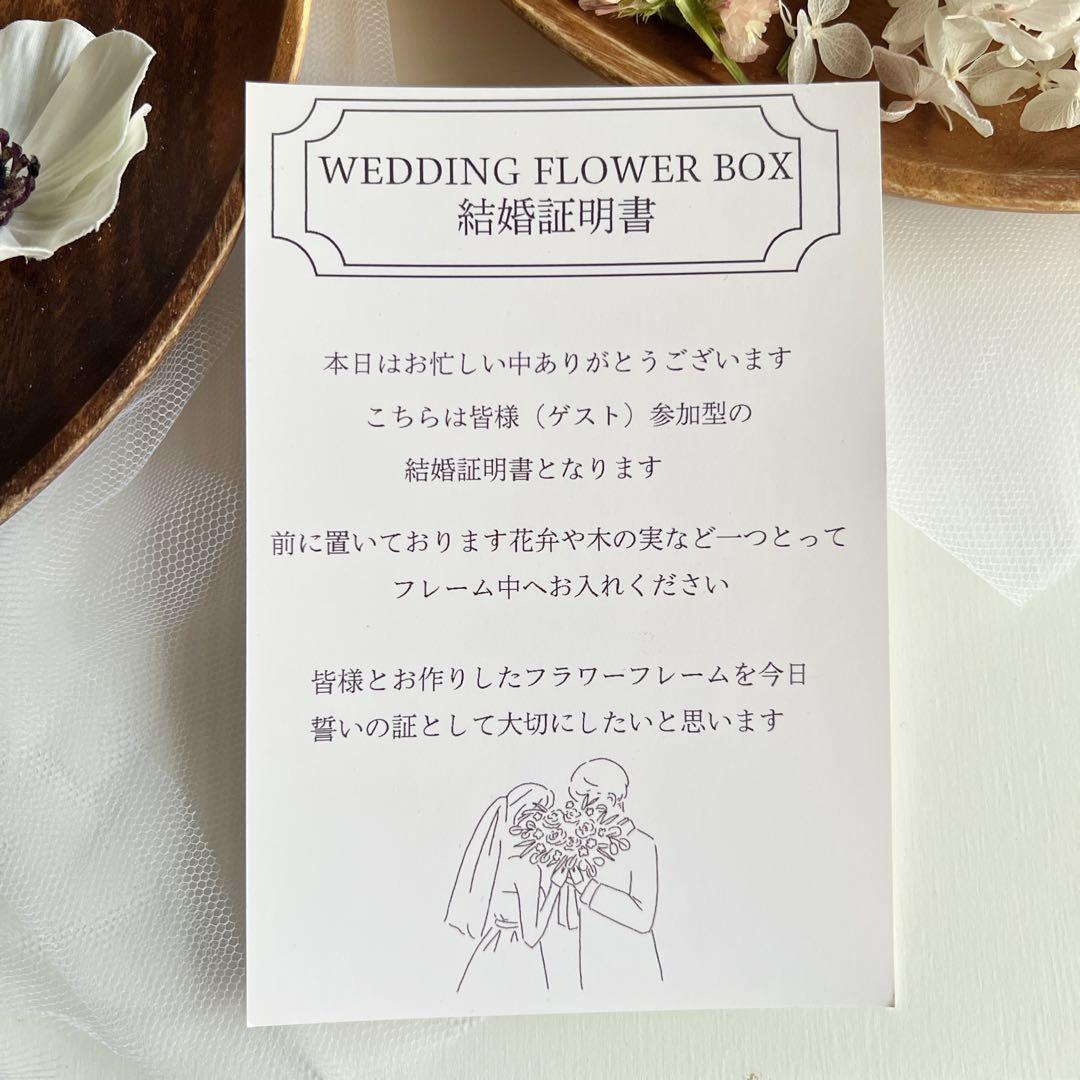 WEDDING FLOWER BOX
結婚証明書
本日はお忙しい中ありがとうございます
こちらは皆様（ゲスト）参加型の
結婚証明書となります
前に置いております花弁や木の実など一つとって
フレーム中へお入れください
皆様とお作りしたフラワーフレームを今日
誓いの証として大切にしたいと思います